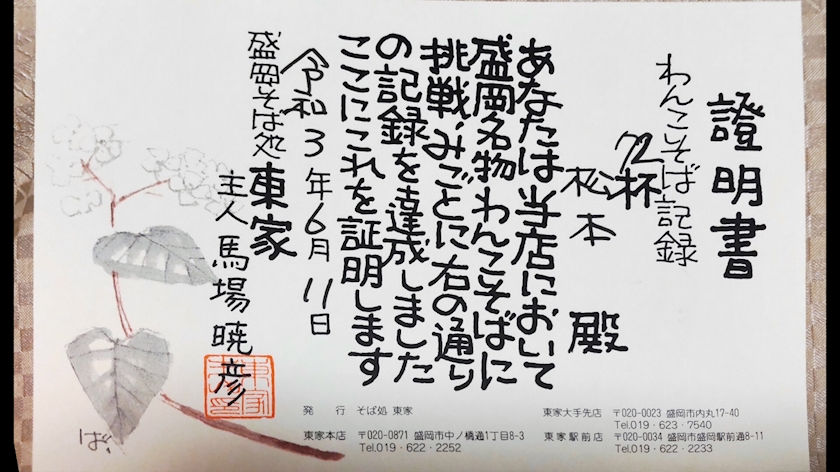 證明書
わんこそば記録
72杯
松本 殿
あなたは当店において
盛岡名物わんこそばに
挑戦、みごとに右の通り
の記録を達成しました
ここにこれを証明します
令和3年6月11日
盛岡そば処 東家
主人 馬場暁彦
ば、
発 行 そば処 東家
東家本店 〒020-0871 盛岡市中ノ橋通1丁目8-3
Tel.019・622・2252
東家大手先店 〒020-0023 盛岡市内丸17-40
Tel.019・623・7540
東家駅前店 〒020-0034 盛岡市盛岡駅前通8-11
Tel.019・622・2233